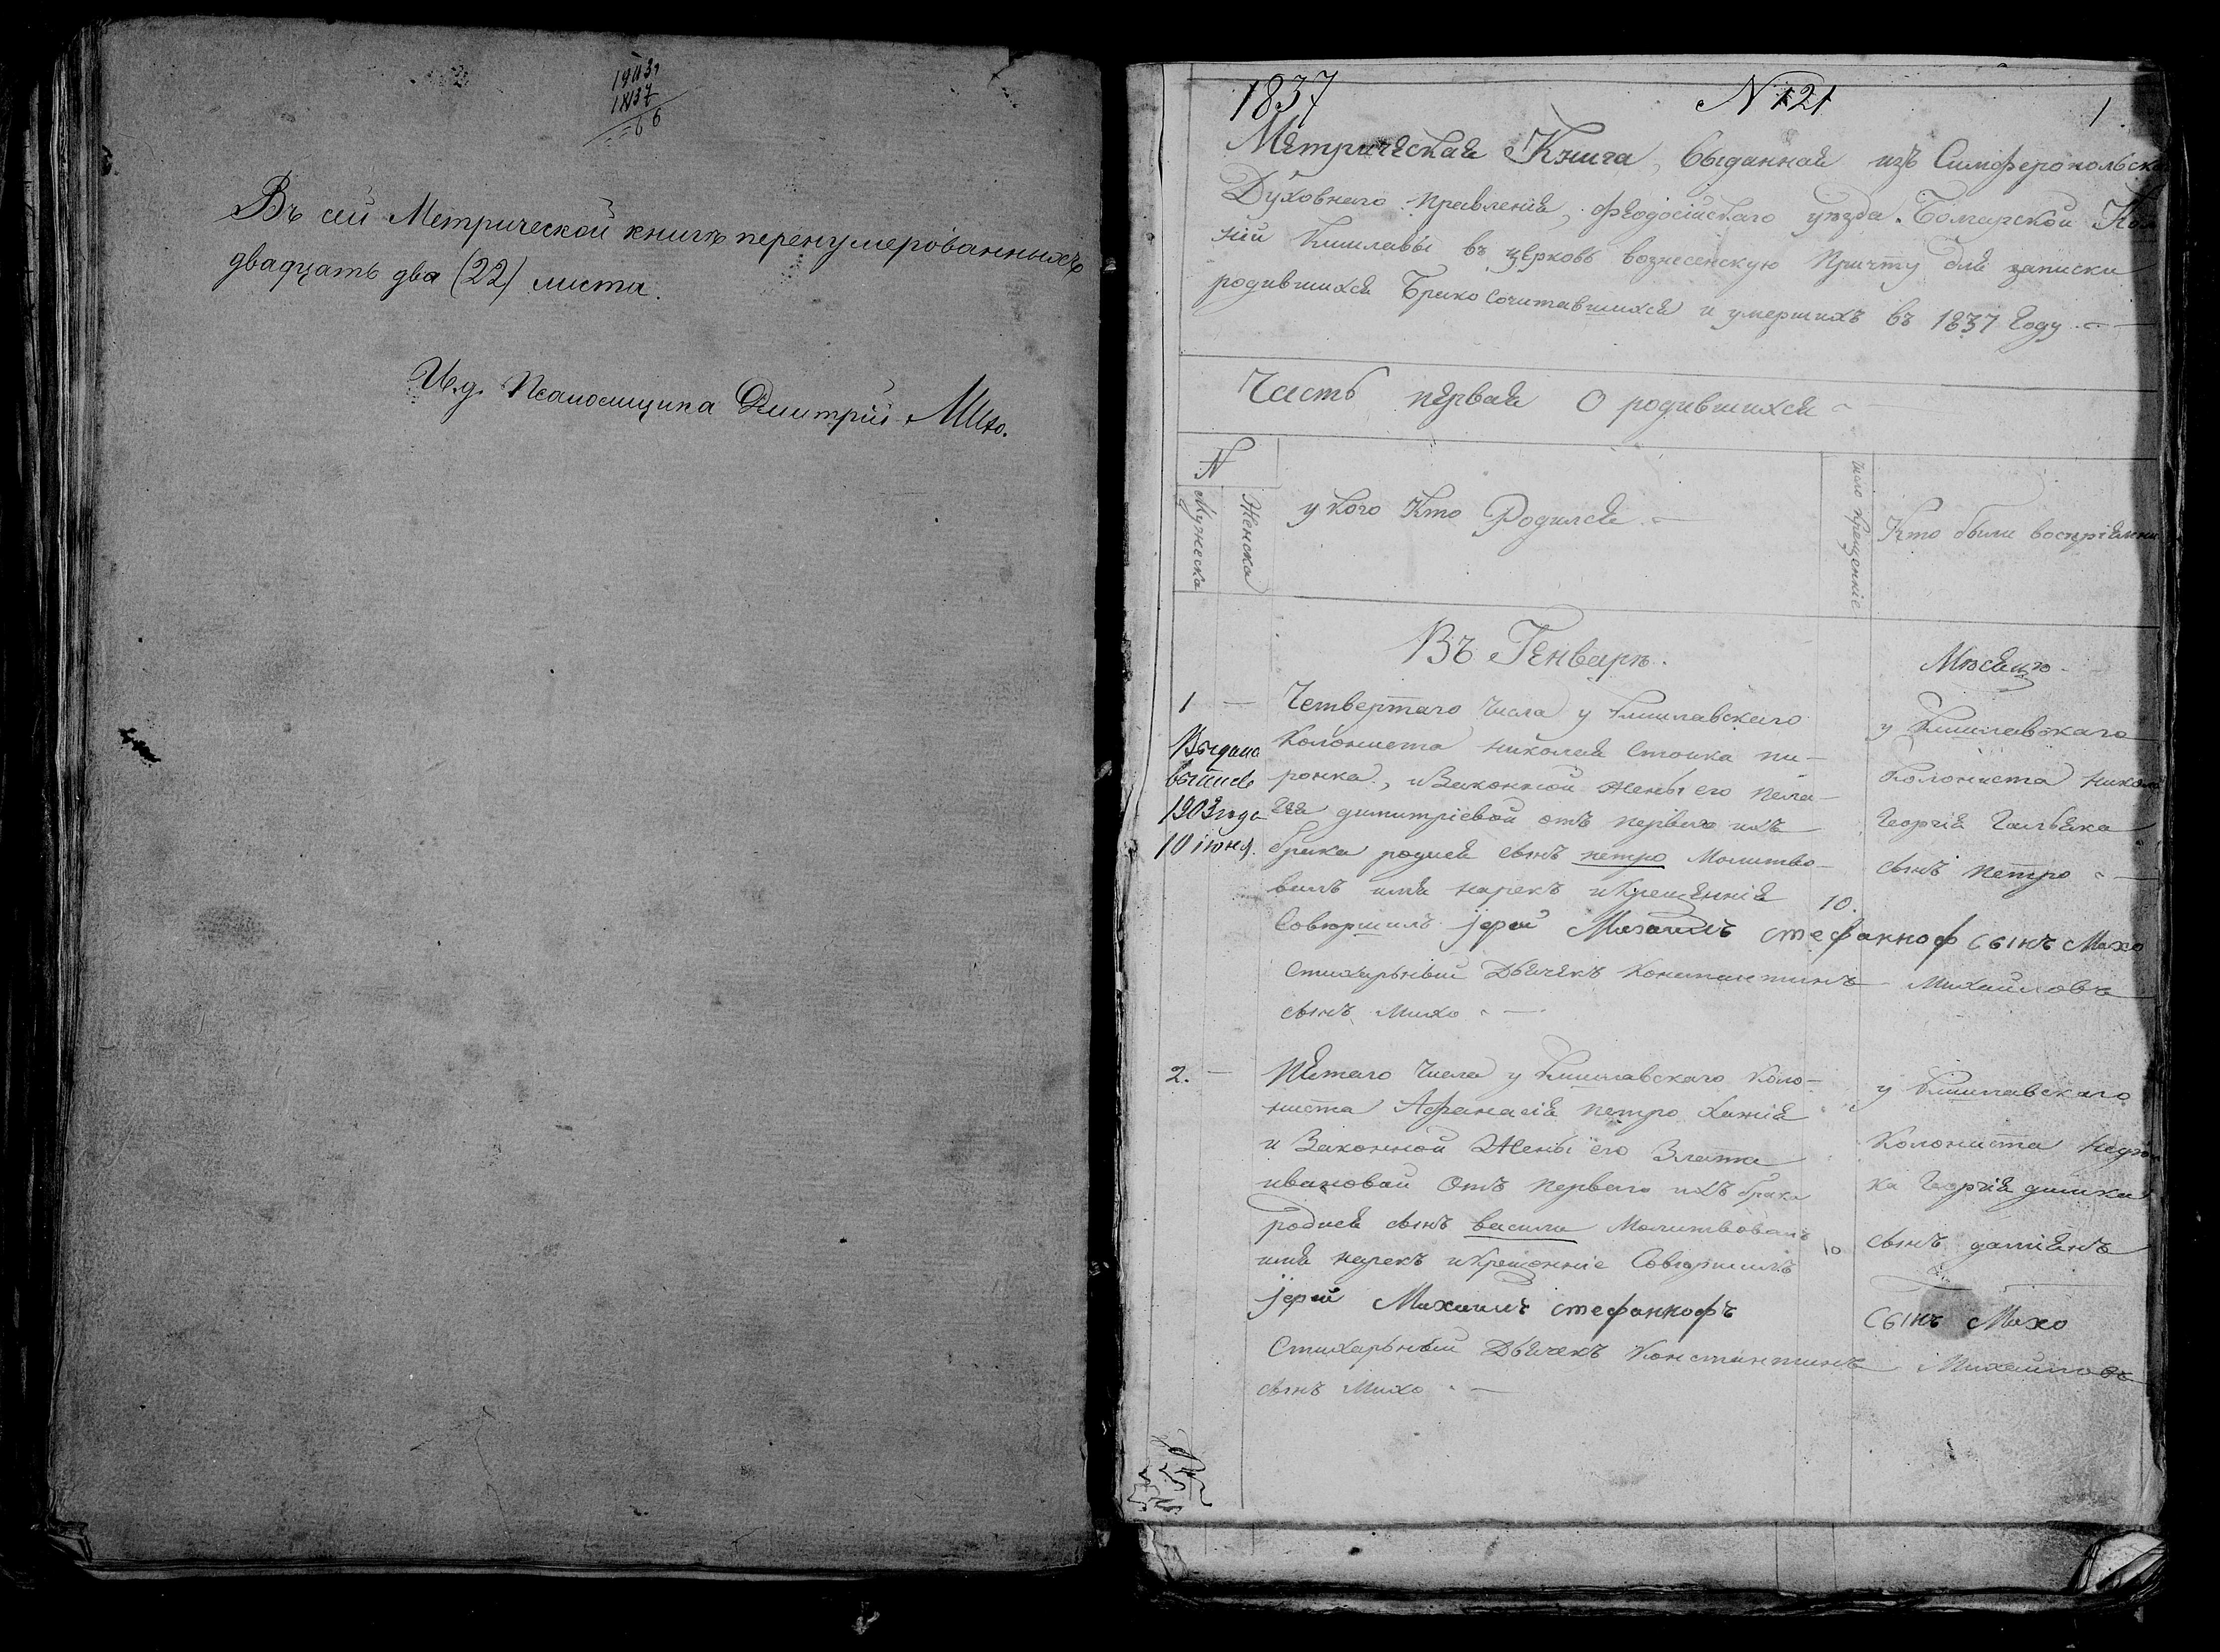 1903
1837
66
Въ сей Метрической книгѣ перенумерованныхъ
двадцать два (22) листа.
И.д. Псаломщика Дмитрій Михо.
1837
N 121
1
Метрическая Книга, выданная изъ Симферопольска
Духовнаго правленія, феодосійскаго уѣзда Болгарской Ко
ній Кишлавы въ церковь вознесенскую Причту для записки
родившихся Брако сочитавшихся и умершихъ въ 1837 Году
Часть первая О родившихся
N
Мужеска
Женска
у Кого Кто Родился
число крещенніе
Кто были воспріемни
Въ Генварѣ.
Мѣсяцѣ
1 —
Четвертаго Числа у Кишлавскаго
Колониста николая Стоика пи-
ронка, и Законной жены его пела-
гея димитріевой отъ перваго ихъ
брака родися сынъ петро Молитво-
валъ имя нарекъ и Крещенніе
10.
Совершилъ іерей Михаилъ стефанкоф сынъ Михо
Стихарьный Дьячекъ Константинъ Михайловъ
сынъ Михо
Выдана
выпись
1903 года
10 іюня.
у Кишлавскаго
Колониста Никола
Георгія
сынъ петро
2. —
Пятаго Числа у Кишлавскаго Коло-
ниста Афанасія петро Хажія
и Законной Жены его Злата
ивановой Отъ перваго ихъ брака
родися сынъ васили Молитвовалъ
имя нарекъ и Крещенніе Совершилъ
10
іерей Михаилъ стефанкофъ
сынъ Михо
Стихарьный Дьячекъ Константинъ Михайловъ
сынъ Михо
у Кишлавскаго
Колониста
ка Георгія
сынъ даміянъ